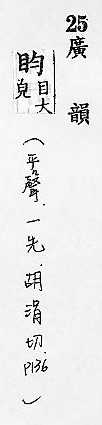 25廣韻
盷目大皃(平聲.一先.胡涓切.P136)